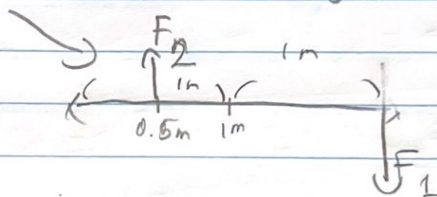 F2
1m 1m
0.5m 1m
F1